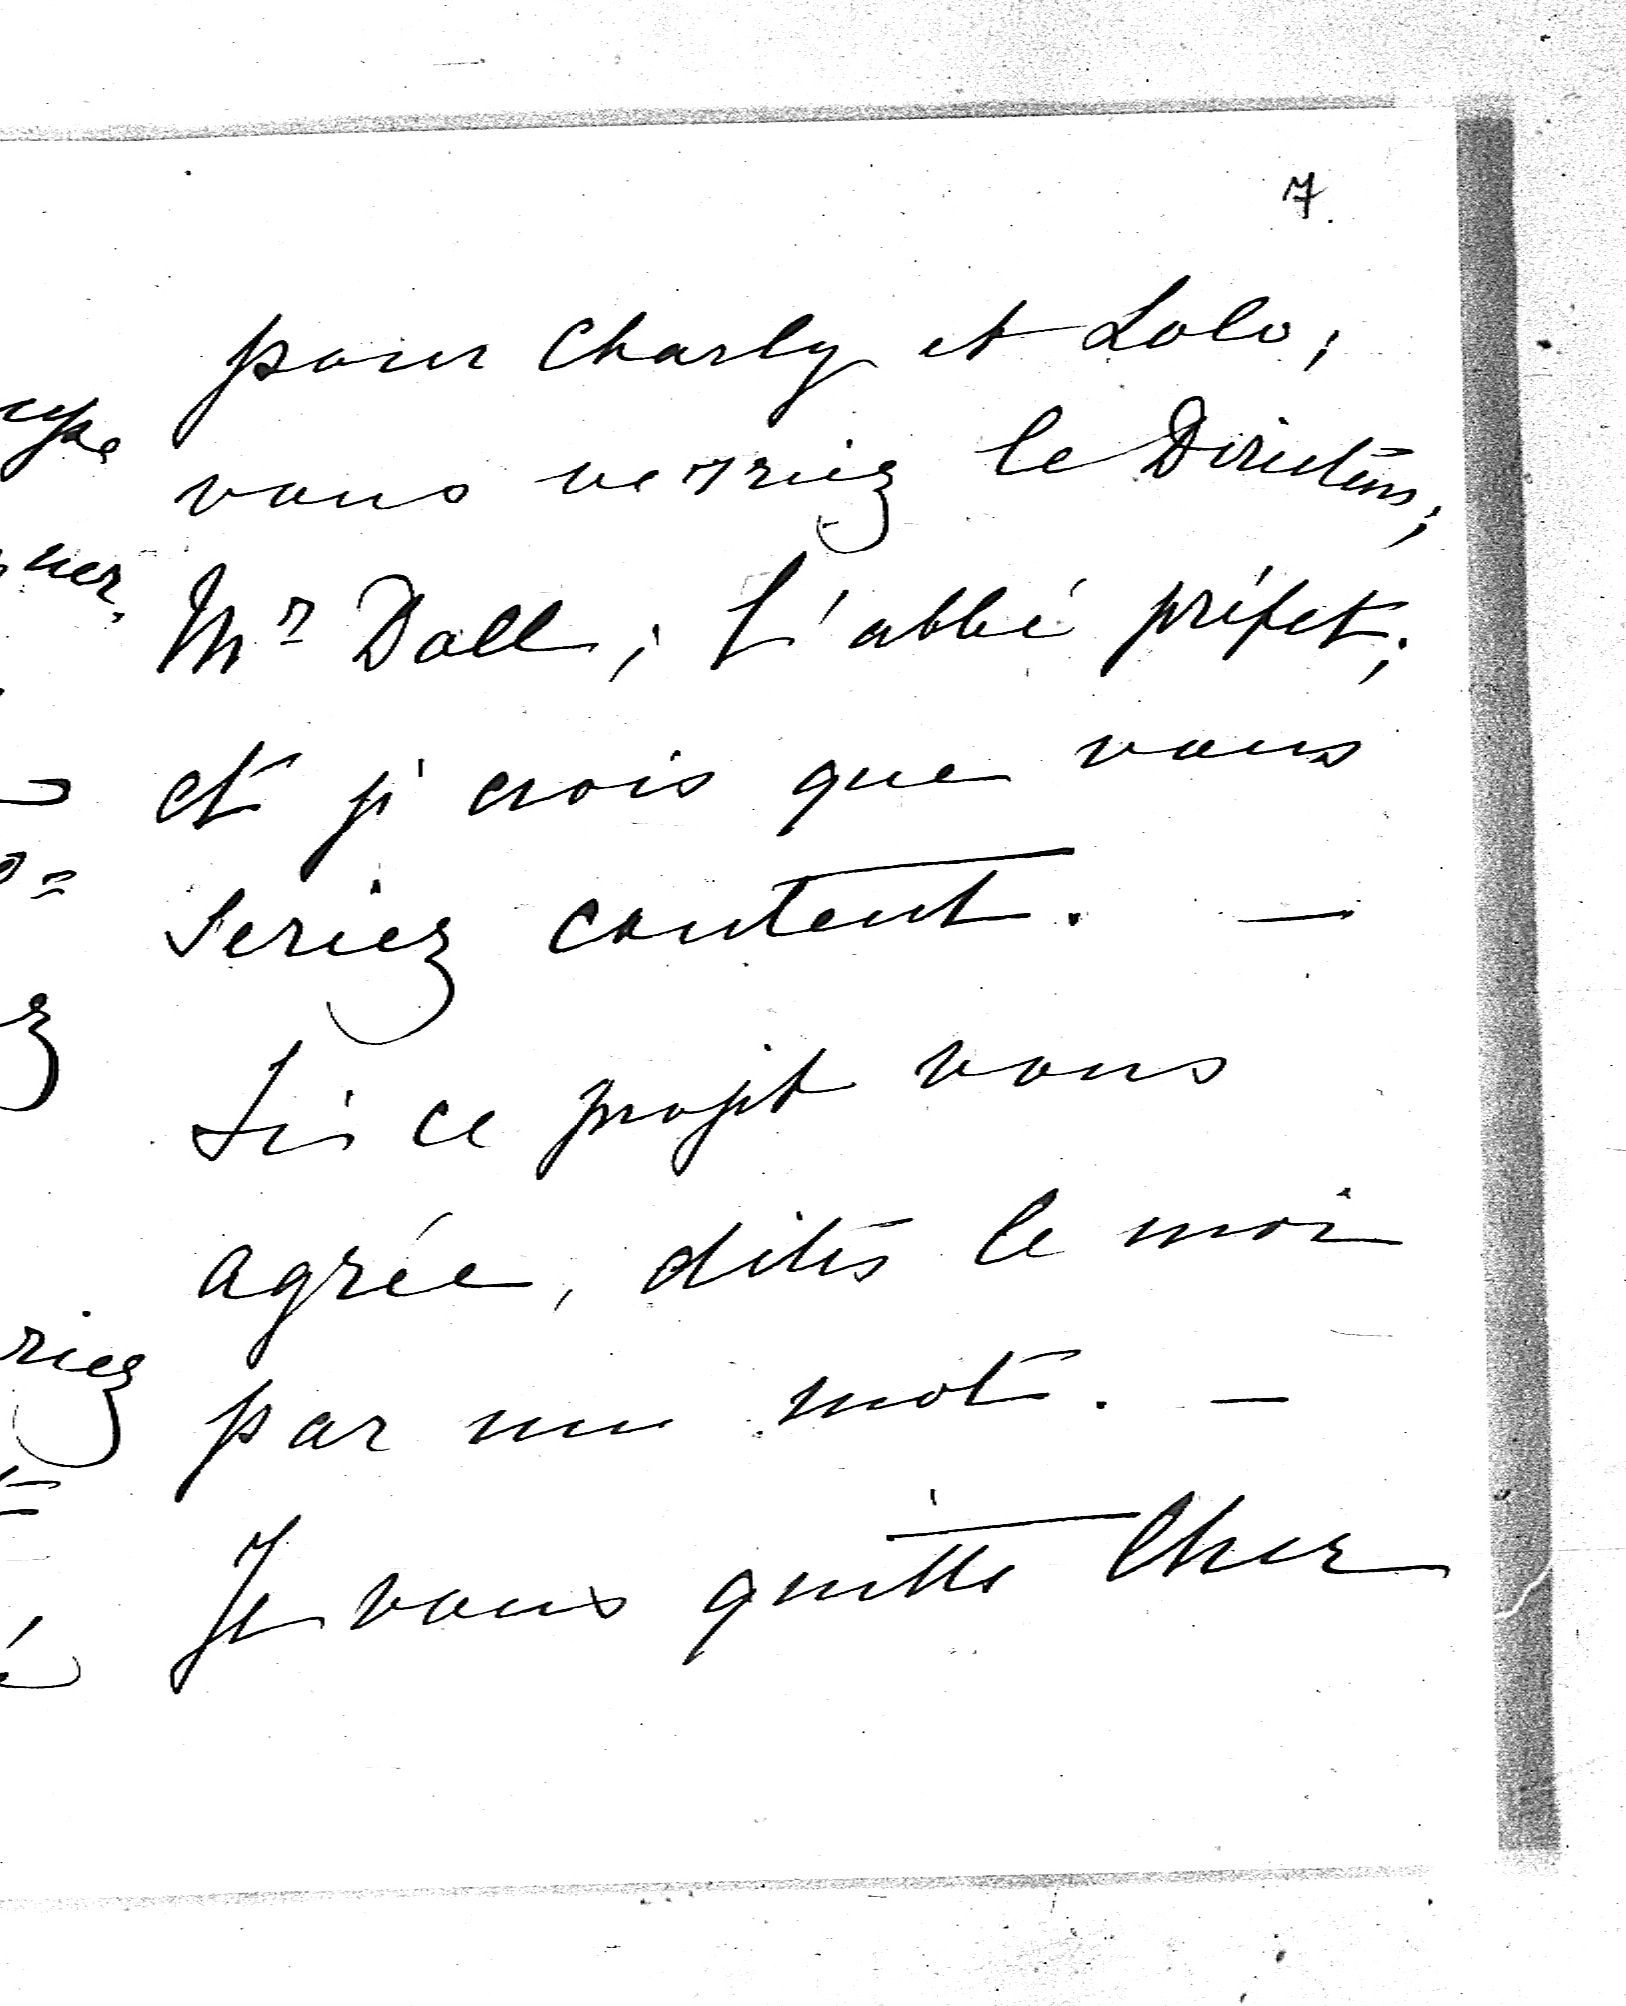 7.
pour Charly et Lolo;
vous verriez le Directeur;
Mr Doll; l'abbé préfet;
et je crois que vous
seriez content. —
Si ce projet vous
agrée, dites le moi
par un mot. —
Je vous quitte Cher